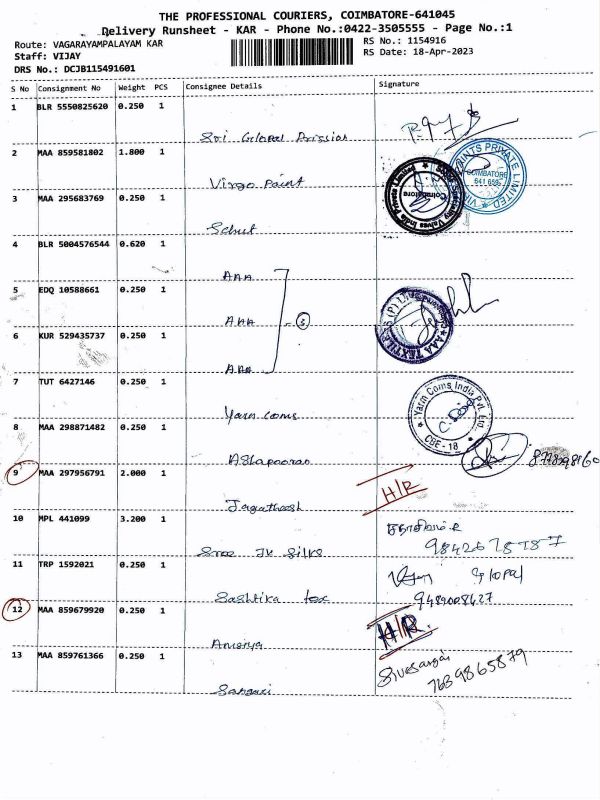 THE PROFESSIONAL COURIERS, COIMBATORE-641045
Delivery Runsheet - KAR - Phone No.:0422-3505555 - Page No.:1
Route: VAGARAYAMPALAYAM KAR
RS No.: 1154916
Staff: VIJAY
RS Date: 18-Apr-2023
DRS No.: DCJB115491601
S No Consignment No Weight PCS Consignee Details Signature
1 BLR 5550825620 0.250 1
Sri Global
2 MAA 859581802 1.800 1
Virgo Paint
PAINTS PRIVATE LIMITED
COIMBATORE
641 659
3 MAA 295683769 0.250 1
Schut
Valves India Private Limited
Coimbatore
4 BLR 5004576544 0.620 1
AAA
5 EDQ 10588661 0.250 1
AAA
3
AAA TEXTILES (P) LTD
6 KUR 529435737 0.250 1
AAA
7 TUT 6427146 0.250 1
Yarn Coms
Yarn Coms India Pvt. Ltd.
CBE - 18
8 MAA 298871482 0.250 1
Ashapooran
9 MAA 297956791 2.000 1
Jagatheesh
H/R
10 MPL 441099 3.200 1
Sree JK Silks
11 TRP 1592021 0.250 1
Sashtika tex
9489008427
12 MAA 859679920 0.250 1
H/R
13 MAA 859761366 0.250 1
7639865879